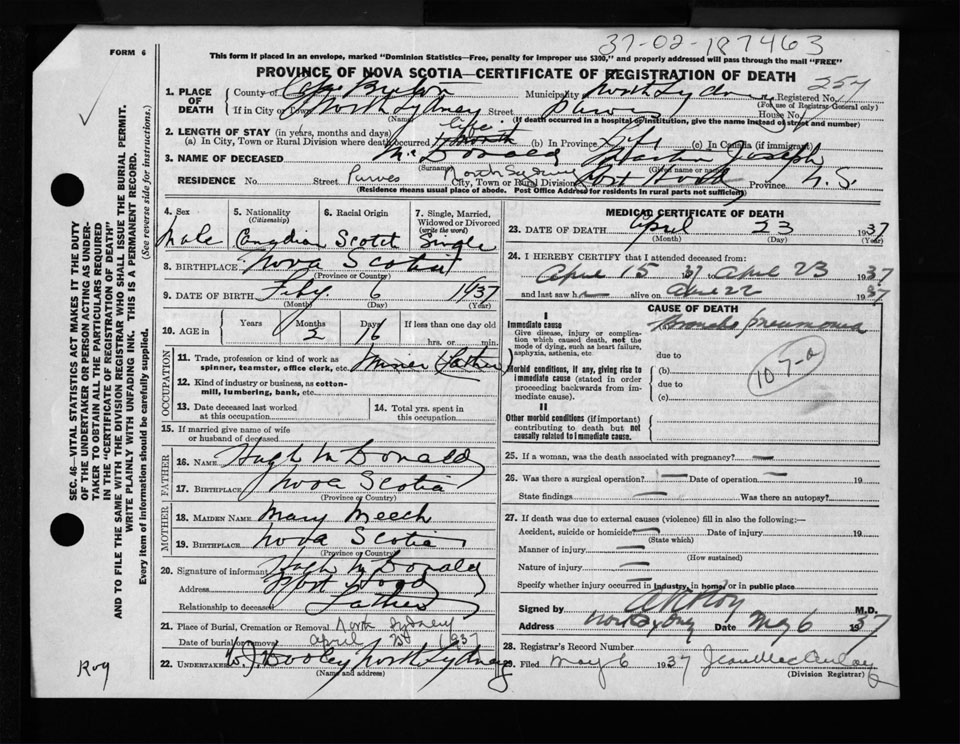 FORM 6
37-02-187463
This form if placed in an envelope, marked "Dominion Statistics—Free, penalty for improper use $300," and properly addressed will pass through the mail "FREE"
PROVINCE OF NOVA SCOTIA—CERTIFICATE OF REGISTRATION OF DEATH
257
1. PLACE OF DEATH County of Cape Breton Municipality North Sydney Registered No. (For use of Registrar-General only)
If in City or Town North Sydney Street Purves House No.
(Name) (If death occurred in a hospital or institution, give the name instead of street and number)
2. LENGTH OF STAY (in years, months and days) life
(a) In City, Town or Rural Division where death occurred (b) In Province life (c) In Canada (if immigrant)
3. NAME OF DECEASED McDonald Martin Joseph
(Surname) (Given name or names)
RESIDENCE No. Street Purves City, Town or Rural Division North Sydney Province N. S.
(Residence means usual place of abode. Post Office Address for residents in rural parts not sufficient)
4. Sex Male
5. Nationality (Citizenship) Canadian
6. Racial Origin Scotch
7. Single, Married, Widowed or Divorced (write the word) Single
8. BIRTHPLACE Nova Scotia
(Province or Country)
9. DATE OF BIRTH Feby. 6 1937
(Month) (Day) (Year)
10. AGE in Years Months 2 Days 16 If less than one day old hrs. or min.
OCCUPATION
11. Trade, profession or kind of work as spinner, teamster, office clerk, etc. Miner (Father)
12. Kind of industry or business, as cotton-mill, lumbering, bank, etc.
13. Date deceased last worked at this occupation
14. Total yrs. spent in this occupation
15. If married give name of wife or husband of deceased
FATHER
16. NAME Hugh McDonald
17. BIRTHPLACE Nova Scotia
(Province or Country)
MOTHER
18. MAIDEN NAME Mary Meech
19. BIRTHPLACE Nova Scotia
(Province or Country)
20. Signature of informant Hugh McDonald
Address
Relationship to deceased Father
21. Place of Burial, Cremation or Removal North Sydney
Date of burial or removal April 1937
22. UNDERTAKER W. J. Dooley North Sydney
(Name and address)
MEDICAL CERTIFICATE OF DEATH
23. DATE OF DEATH April 23 1937
(Month) (Day) (Year)
24. I HEREBY CERTIFY that I attended deceased from:
April 15 37 to April 23 1937
and last saw h alive on 22 1937
CAUSE OF DEATH
I
Immediate cause
Give disease, injury or complication which caused death, not the mode of dying, such as heart failure, asphyxia, asthenia, etc
Broncho pneumonia
due to
Morbid conditions, if any, giving rise to immediate cause (stated in order proceeding backwards from immediate cause).
(b)
due to
(c)
107-a
II
Other morbid conditions (if important) contributing to death but not causally related to immediate cause.
25. If a woman, was the death associated with pregnancy? —
26. Was there a surgical operation? — Date of operation — 19
State findings — Was there an autopsy? —
27. If death was due to external causes (violence) fill in also the following:—
Accident, suicide or homicide? — Date of injury 19
(State which)
Manner of injury —
(How sustained)
Nature of injury —
Specify whether injury occurred in industry, in home, or in public place
Signed by M.D.
Address North Sydney Date May 6 1937
28. Registrar's Record Number
29. Filed May 6 1937
(Division Registrar)
SEC. 46—VITAL STATISTICS ACT MAKES IT THE DUTY OF THE UNDERTAKER OR PERSON ACTING AS UNDERTAKER TO OBTAIN ALL THE PARTICULARS REQUIRED IN THE "CERTIFICATE OF REGISTRATION OF DEATH" AND TO FILE THE SAME WITH THE DIVISION REGISTRAR WHO SHALL ISSUE THE BURIAL PERMIT.
WRITE PLAINLY WITH UNFADING INK. THIS IS A PERMANENT RECORD.
Every item of information should be carefully supplied. (See reverse side for instructions.)
Roy